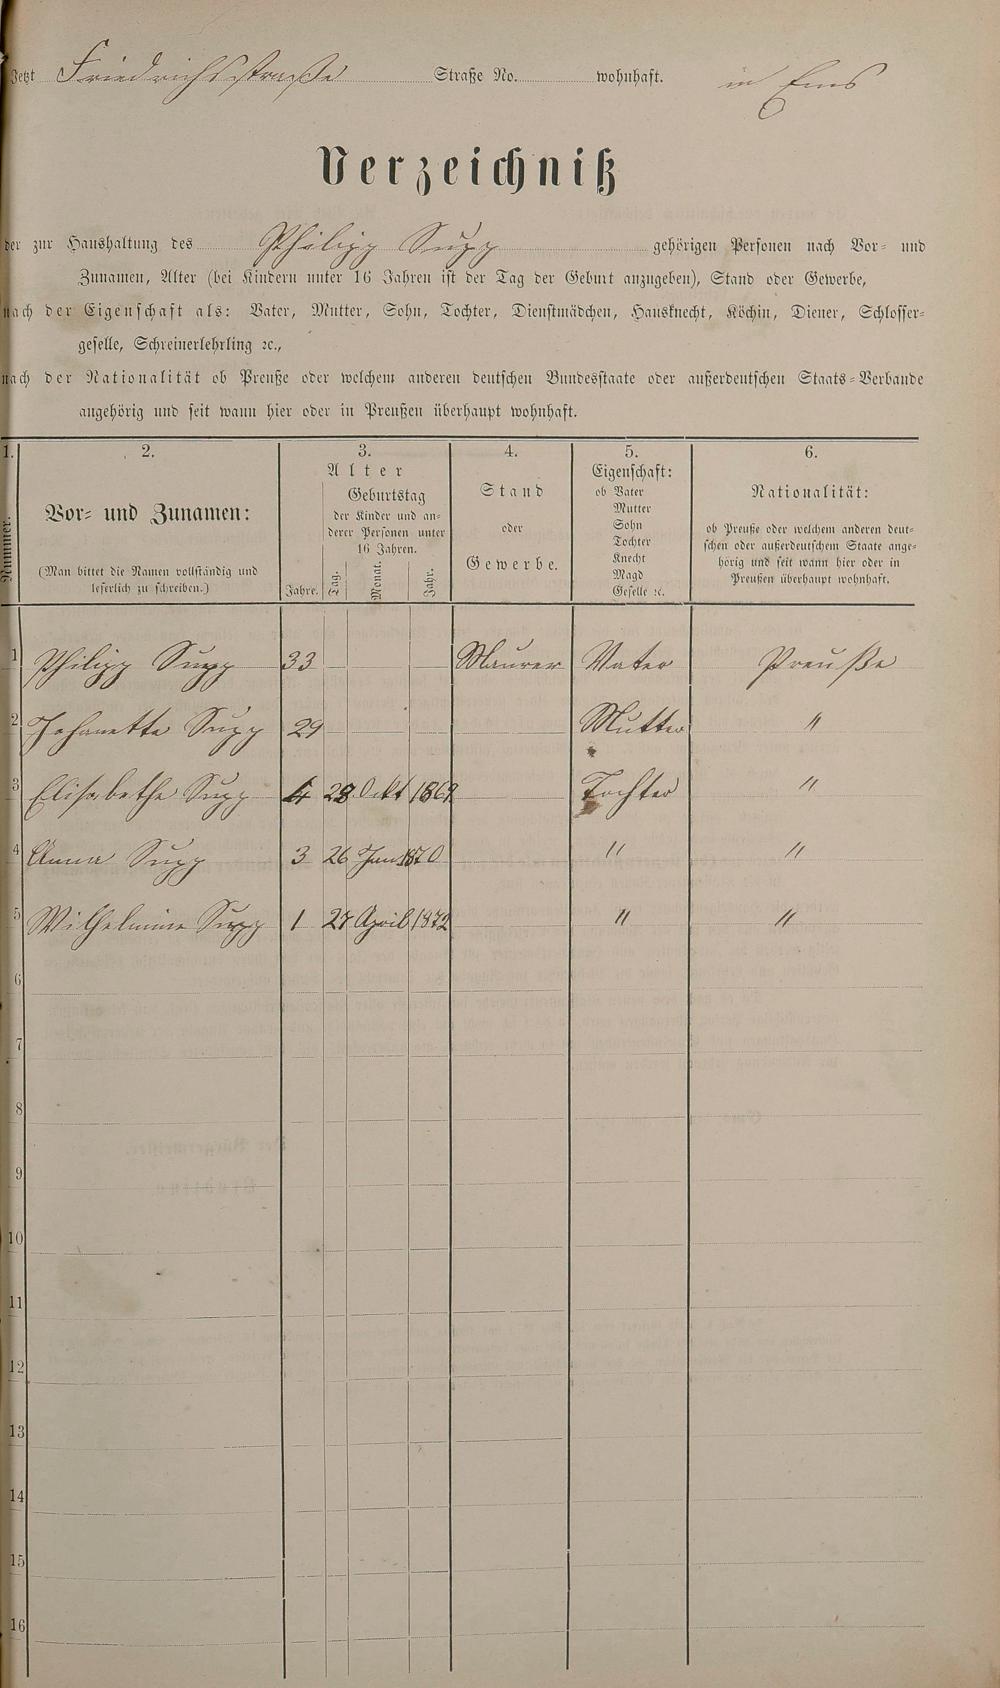 Jetzt Friedrichsstraße Straße No. wohnhaft. in Ems
Verzeichniß
der zur Haushaltung des Philipp Supp gehörigen Personen nach Vor- und
Zunamen, Alter (bei Kindern unter 16 Jahren ist der Tag der Geburt anzugeben), Stand oder Gewerbe,
nach der Eigenschaft als: Vater, Mutter, Sohn, Tochter, Dienstmädchen, Hausknecht, Köchin, Diener, Schlosser-
geselle, Schreinerlehrling ꝛc.,
nach der Nationalität ob Preuße oder welchem anderen deutschen Bundesstaate oder außerdeutschen Staats-Verbande
angehörig und seit wann hier oder in Preußen überhaupt wohnhaft.
1.
Nummer.
2.
Vor- und Zunamen:
(Man bittet die Namen vollständig und
leserlich zu schreiben.)
3.
Alter
Jahre.
Geburtstag
der Kinder und an-
derer Personen unter
16 Jahren.
Tag. Monat. Jahr.
4.
Stand
oder
Gewerbe.
5.
Eigenschaft:
ob Vater
Mutter
Sohn
Tochter
Knecht
Magd
Geselle ꝛc.
6.
Nationalität:
ob Preuße oder welchem anderen deut-
schen oder außerdeutschem Staate ange-
hörig und seit wann hier oder in
Preußen überhaupt wohnhaft.
1 Philipp Supp 33 Maurer Vater Preuße
2 Johanette Supp 29 Mutter "
3 Elisabethe Supp 4 28 Ockt 1869 Tochter "
4 Anna Supp 3 26 Jan 1870 " "
5 Wilhelmine Supp 1 27 April 1872 " "
6
7
8
9
10
11
12
13
14
15
16